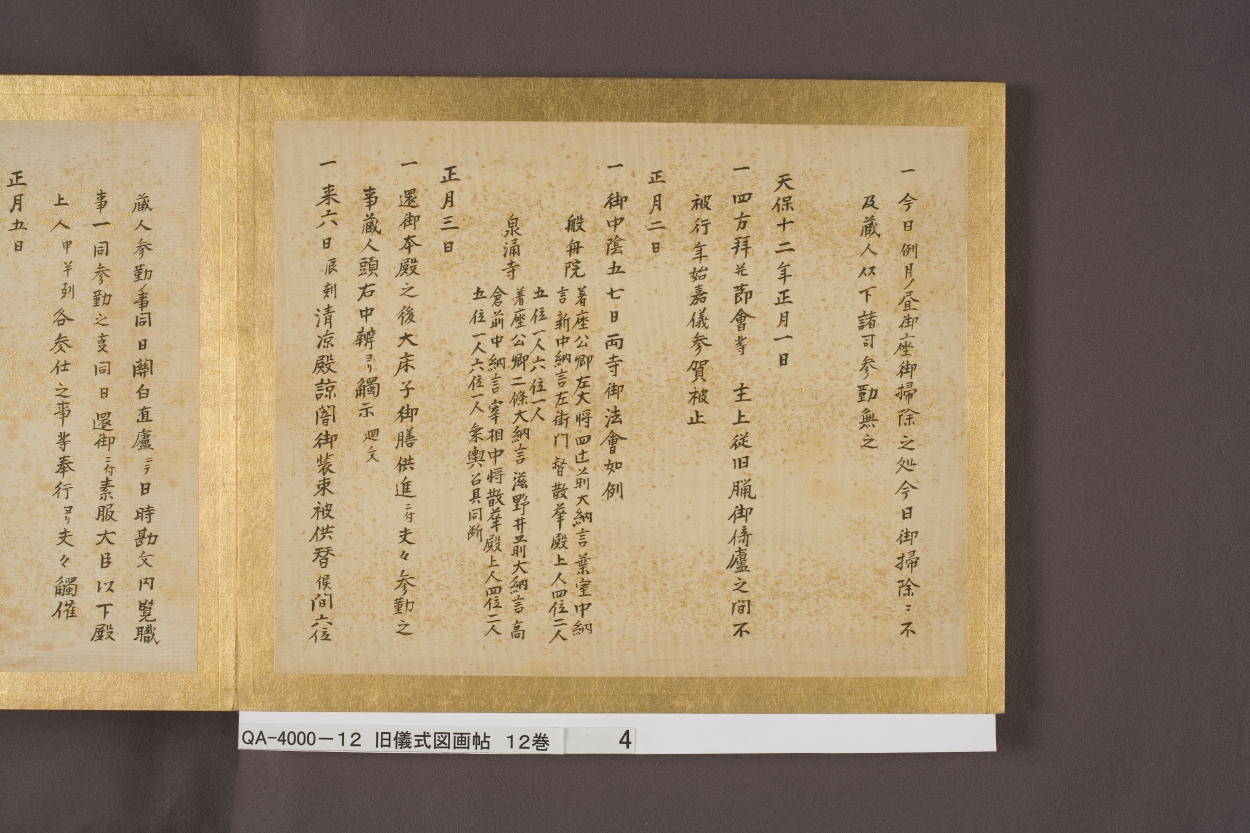 一今日例月ノ昼御座御掃除之処今日御掃除ニ不
及蔵人以下諸司参勤無之
天保十二年正月一日
一四方拝并節會等　主上従旧臘御倚廬之間不
被行年始嘉儀参賀被止
正月二日
一御中陰五七日両寺御法會如例
般舟院
著座公卿左大将四辻前大納言葉室中納
言新中納言左衛門督散華殿上人四位二人
五位一人六位一人
泉涌寺
著座公卿二條大納言滋野井前大納言高
倉前中納言宰相中将散華殿上人四位二人
五位一人六位一人衆輿召具同断
正月三日
一還御本殿之後大床子御膳供進ニ付夫々参勤之
事蔵人頭右中辨ヨリ觸示廻文
一来六日辰刻清凉殿諒闇御装束被供替候間六位
蔵人参勤ノ事同日關白直廬ニテ日時勘文内覧職
事一同参勤之事同日還御ニ付素服大臣以下殿
上人申半刻各参仕之事等奉行ヨリ夫々觸催
正月五日
QA-4000-12　旧儀式図画帖　12巻　4